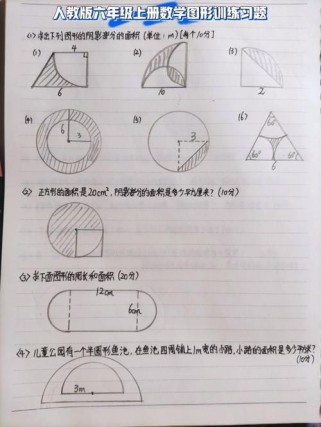 人教版六年级上册数学图形训练习题
<1>求出下列图形的阴影部分的面积(单位:m)[每个10分]
(1) (2) (3)
4
6 10 2
(4) (5) (6)
6 3 3 60°
60° 60°
6
<2> 正方形的面积是20cm²,阴影部分的面积是多少平方厘米?(10分)
<3> 求下面图形的周长和面积(20分)
12cm
6cm
<4> 儿童公园有一个半圆形鱼池,在鱼池四周铺上1m宽的小路,小路的面积是多少平方米?
(10分)
3m